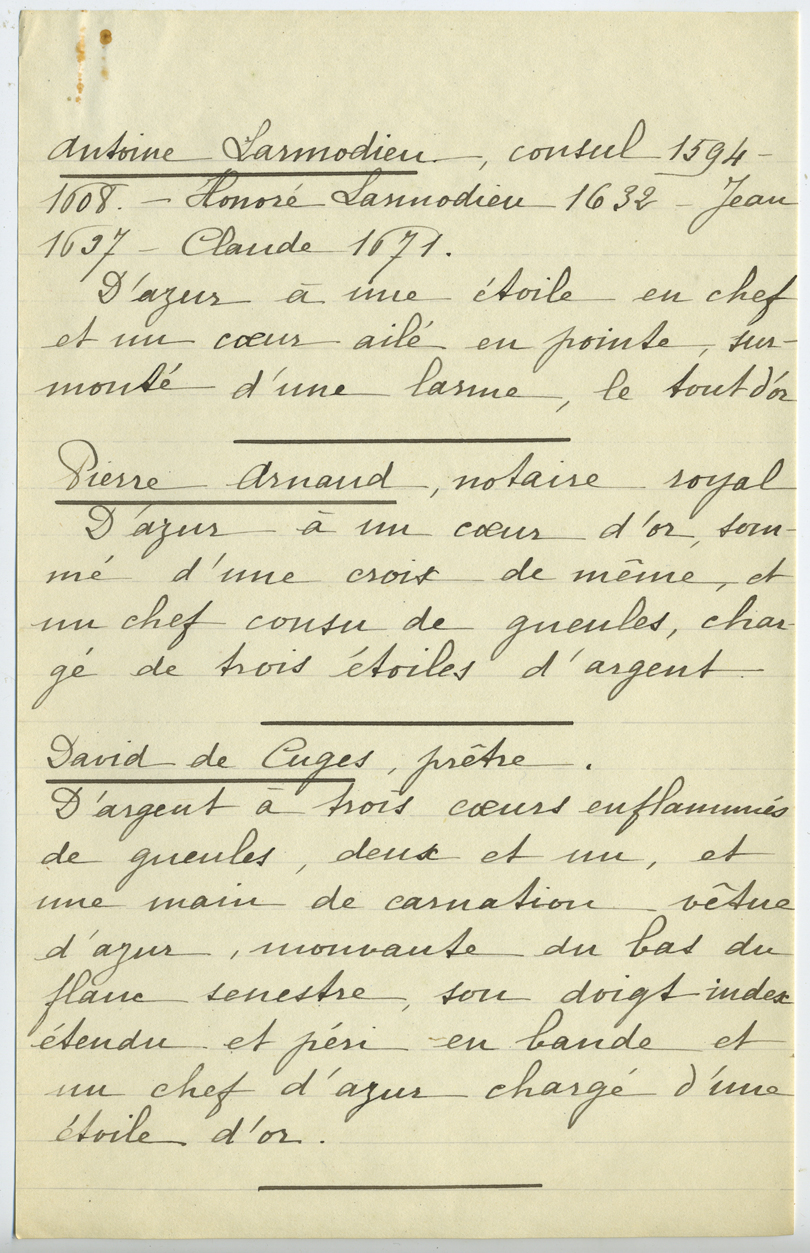 Antoine Larmodieu, consul 1594-
1608. - Honoré Larmodieu 1632 - Jean
1637 - Claude 1671.
D'azur à une étoile en chef
et un cœur ailé en pointe, sur-
monté d'une larme, le tout d'or
Pierre Arnaud, notaire royal
D'azur à un cœur d'or, som-
mé d'une croix de même, et
un chef consu de gueules, char-
gé de trois étoiles d'argent
David de Cuges, prêtre.
D'argent à trois cœurs enflammés
de gueules, deux et un, et
une main de carnation vêtue
d'azur, mouvante du bas du
flanc senestre, son doigt index
étendu et péri en bande et
un chef d'azur chargé d'une
étoile d'or.